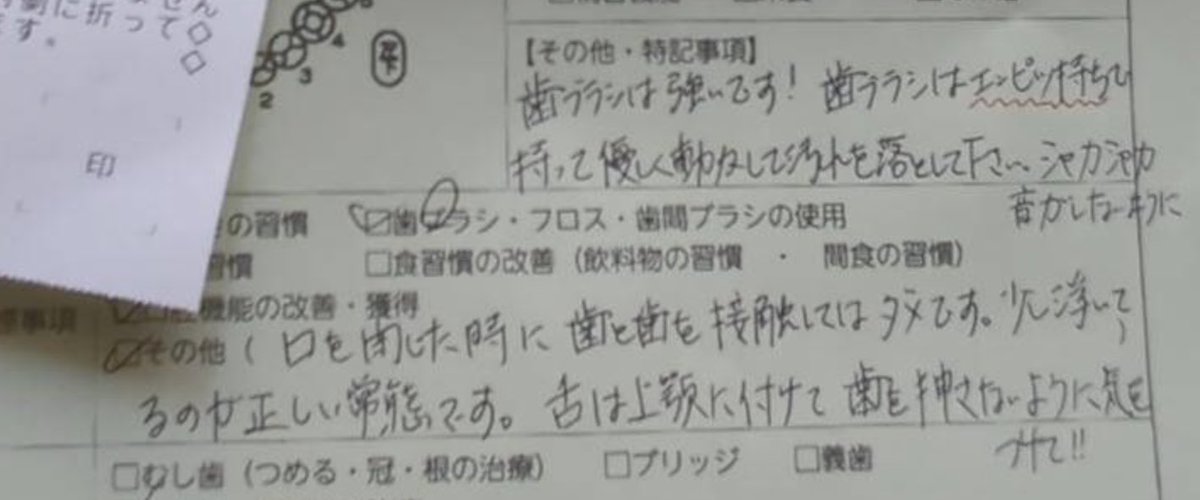 す。
に折って
印
2
3
4
【その他・特記事項】
歯ブラシは強いです！歯ブラシはエンピツ持ちで
持って優しく動かして汚れを落として下さい、シャカシャカ
音がしないように
の習慣 ☑歯ブラシ・フロス・歯間ブラシの使用
習慣 □食習慣の改善（飲料物の習慣 ・ 間食の習慣）
機能の改善・獲得
事項
☑その他（口を閉じた時に歯と歯を接触してはダメです。少し浮いて）
るのが正しい常態です。舌は上顎に付けて歯を押さないように気を
つけて!!
□むし歯（つめる・冠・根の治療） □ブリッジ □義歯